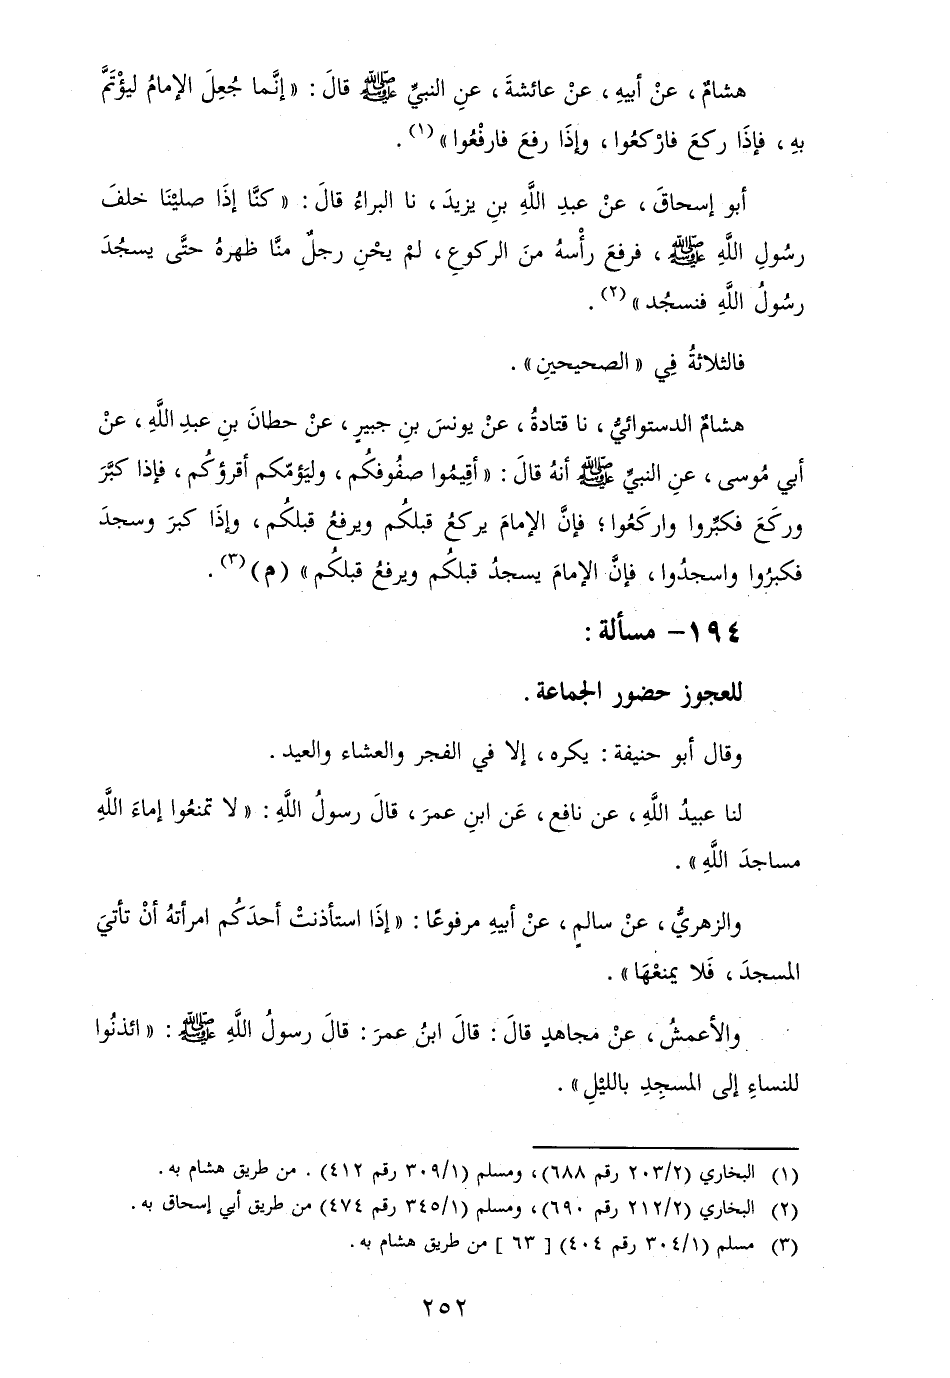 هشامٌ ، عنْ أبيهِ ، عنْ عائشةَ ، عنِ النبيِّ ﷺ قالَ : « إنَّما جُعِلَ الإمامُ ليؤْتَمَّ
بهِ ، فإذَا ركعَ فارْكعُوا ، وإذَا رفعَ فارفْعُوا »(١) .
أبو إسحاقَ ، عنْ عبدِ اللَّهِ بنِ يزيدَ ، نا البراءُ قالَ : « كنَّا إذَا صليْنَا خلفَ
رسُولِ اللَّهِ ﷺ ، فرفعَ رأْسهُ منَ الركوعِ ، لمْ يحْنِ رجلٌ منَّا ظهرهُ حتَّى يسجُدَ
رسُولُ اللَّهِ فنسجُد »(٢) .
فالثلاثةُ فِي « الصحيحينِ » .
هشامٌ الدستوائيُّ ، نا قتادةُ ، عنْ يونسَ بنِ جبيرٍ ، عنْ حطانَ بنِ عبدِ اللَّهِ ، عنْ
أبي مُوسى ، عنِ النبيِّ ﷺ أنهُ قالَ : « أقِيمُوا صفُوفكُم ، وليَؤمّكم أقرؤكُم ، فإذا كبَّرَ
وركَعَ فكبِّروا واركَعُوا ؛ فإنَّ الإمامَ يركعُ قبلكُم ويرفعُ قبلكُم ، وإذَا كبرَ وسجدَ
فكبرُوا واسجدُوا ، فإنَّ الإمامَ يسجدُ قبلكُم ويرفعُ قبلكُم » (م)(٣) .
١٩٤- مسألة :
للعجوز حضور الجماعة .
وقال أبو حنيفة : يكره ، إلا في الفجر والعشاء والعيد .
لنا عبيدُ اللَّهِ ، عن نافع ، عَن ابنِ عمرَ ، قالَ رسولُ اللَّهِ : « لا تمنعُوا إماءَ اللَّهِ
مساجدَ اللَّهِ » .
والزهريُّ ، عنْ سالمٍ ، عنْ أبيهِ مرفوعًا : « إذَا استأذنتْ أحدَكُم امرأتهُ أنْ تأتيَ
المسجدَ ، فَلا يمنعْهَا » .
والأعمشُ ، عنْ مجاهدٍ قالَ : قالَ ابنُ عمرَ : قالَ رسولُ اللَّهِ ﷺ : « ائذنُوا
للنساءِ إلى المسجِدِ بالليْلِ » .
(١) البخاري (٢٠٣/٢ رقم ٦٨٨) ، ومسلم (٣٠٩/١ رقم ٤١٢) . من طريق هشام به .
(٢) البخاري (٢١٢/٢ رقم ٦٩٠) ، ومسلم (٣٤٥/١ رقم ٤٧٤) من طريق أبي إسحاق به .
(٣) مسلم (٣٠٤/١ رقم ٤٠٤) [ ٦٣ ] من طريق هشام به .
٢٥٢